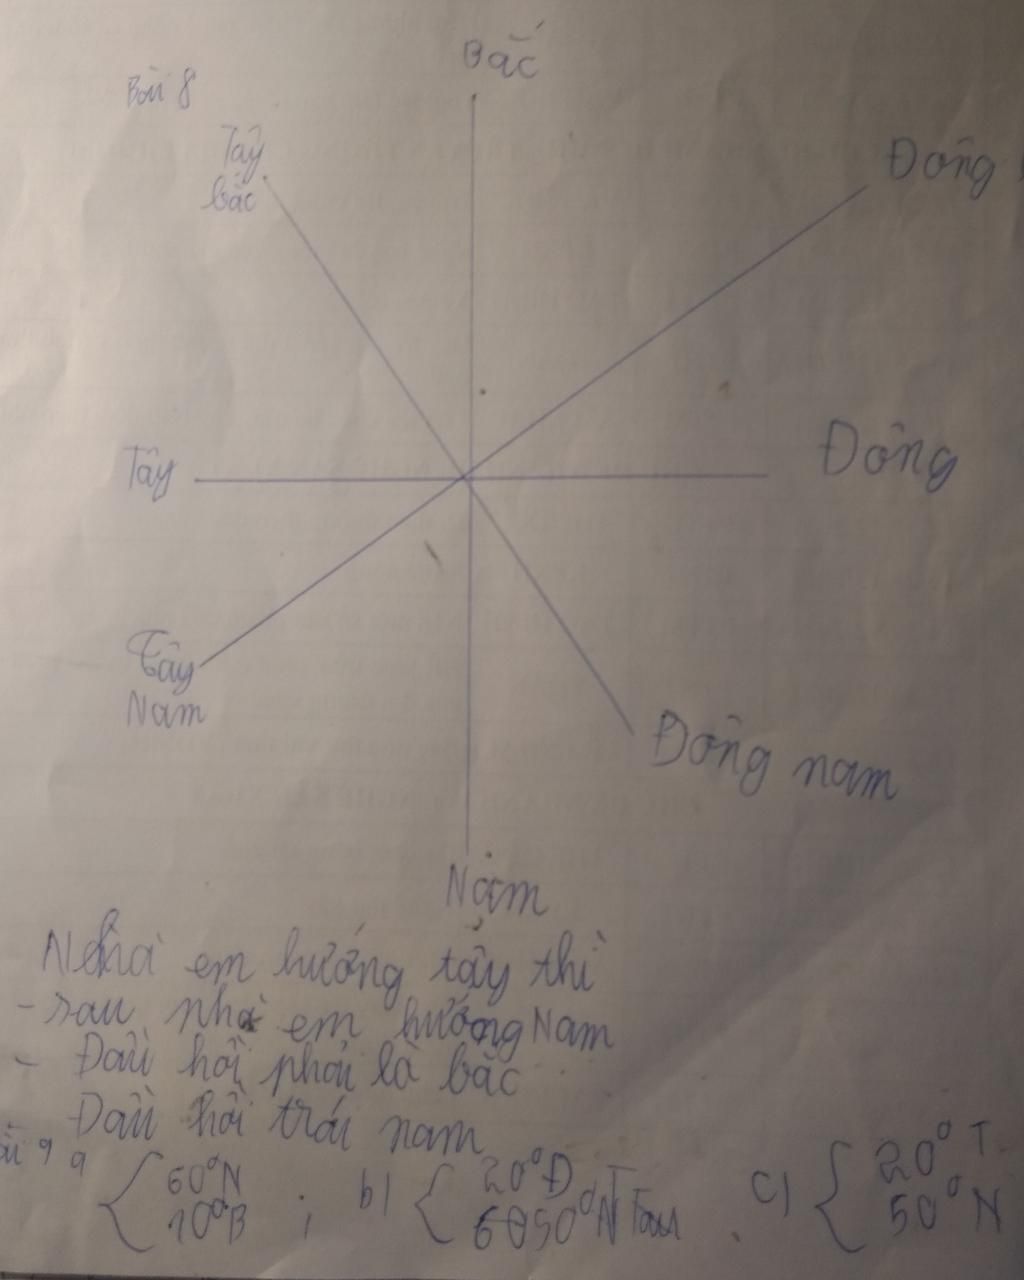 Bắc
Bài 8
Tây
bắc
Đông
Tây
Đông
Tây
Nam
Đông nam
Nam
Nhà em hướng tây thì
- sau nhà em hướng Nam
- Đầu hồi phải là bắc
Đầu hồi trái nam
9 a { 60°N ; b) { 20°Đ c) { 20° T
10°B 50°N 50° N